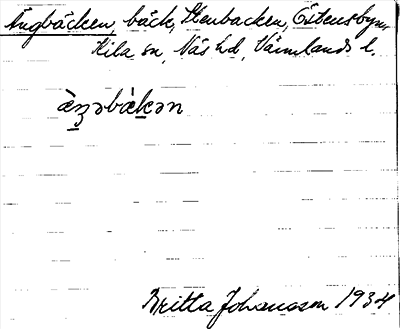 Ängbäcken, bäck, Stenbacken, Östensbyn,
Kila sn, Näs hd, Värmlands l.
Britta Johansson 1934